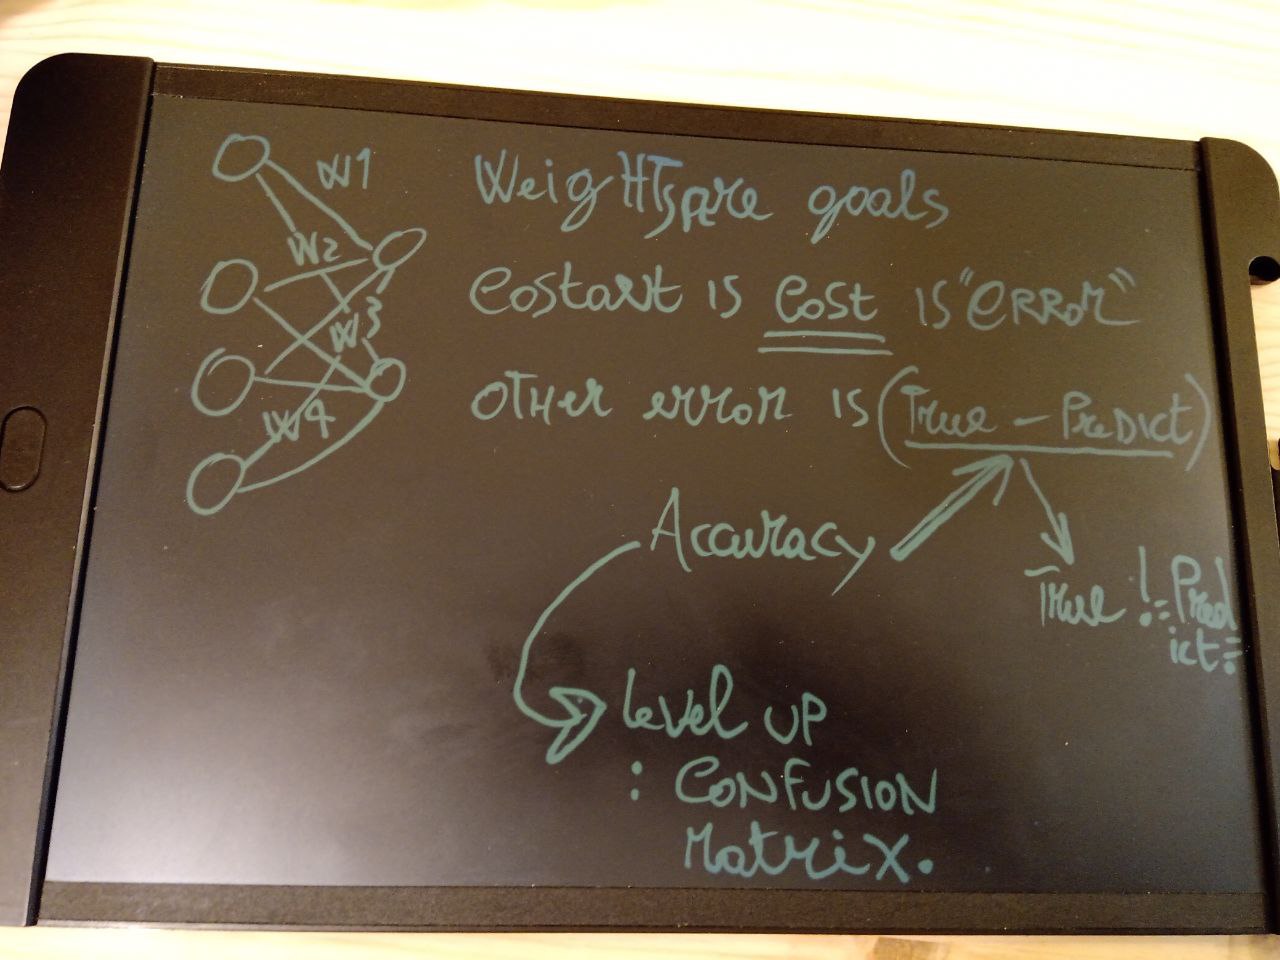 W1
W2
W3
W4
Weights are goals
Costant is cost is "error"
Other error is (True - Predict)
Accuracy
True != Pred
ict =
Level up
: Confusion
Matrix.